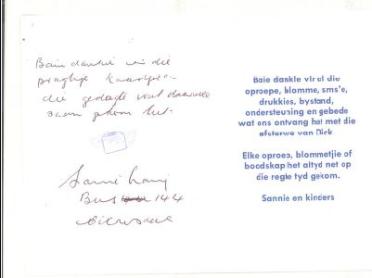 Baie dankie vir die
pragtige
die gedagte wat daarmee
saam gekom het.
Sannie
Bus 144
Baie dankie vir al die
oproepe, blomme, sms'e,
drukkies, bystand,
ondersteuning en gebede
wat ons ontvang het met die
afsterwe van Dirk.
Elke oproep, blommetjie of
boodskap het altyd net op
die regte tyd gekom.
Sannie en kinders